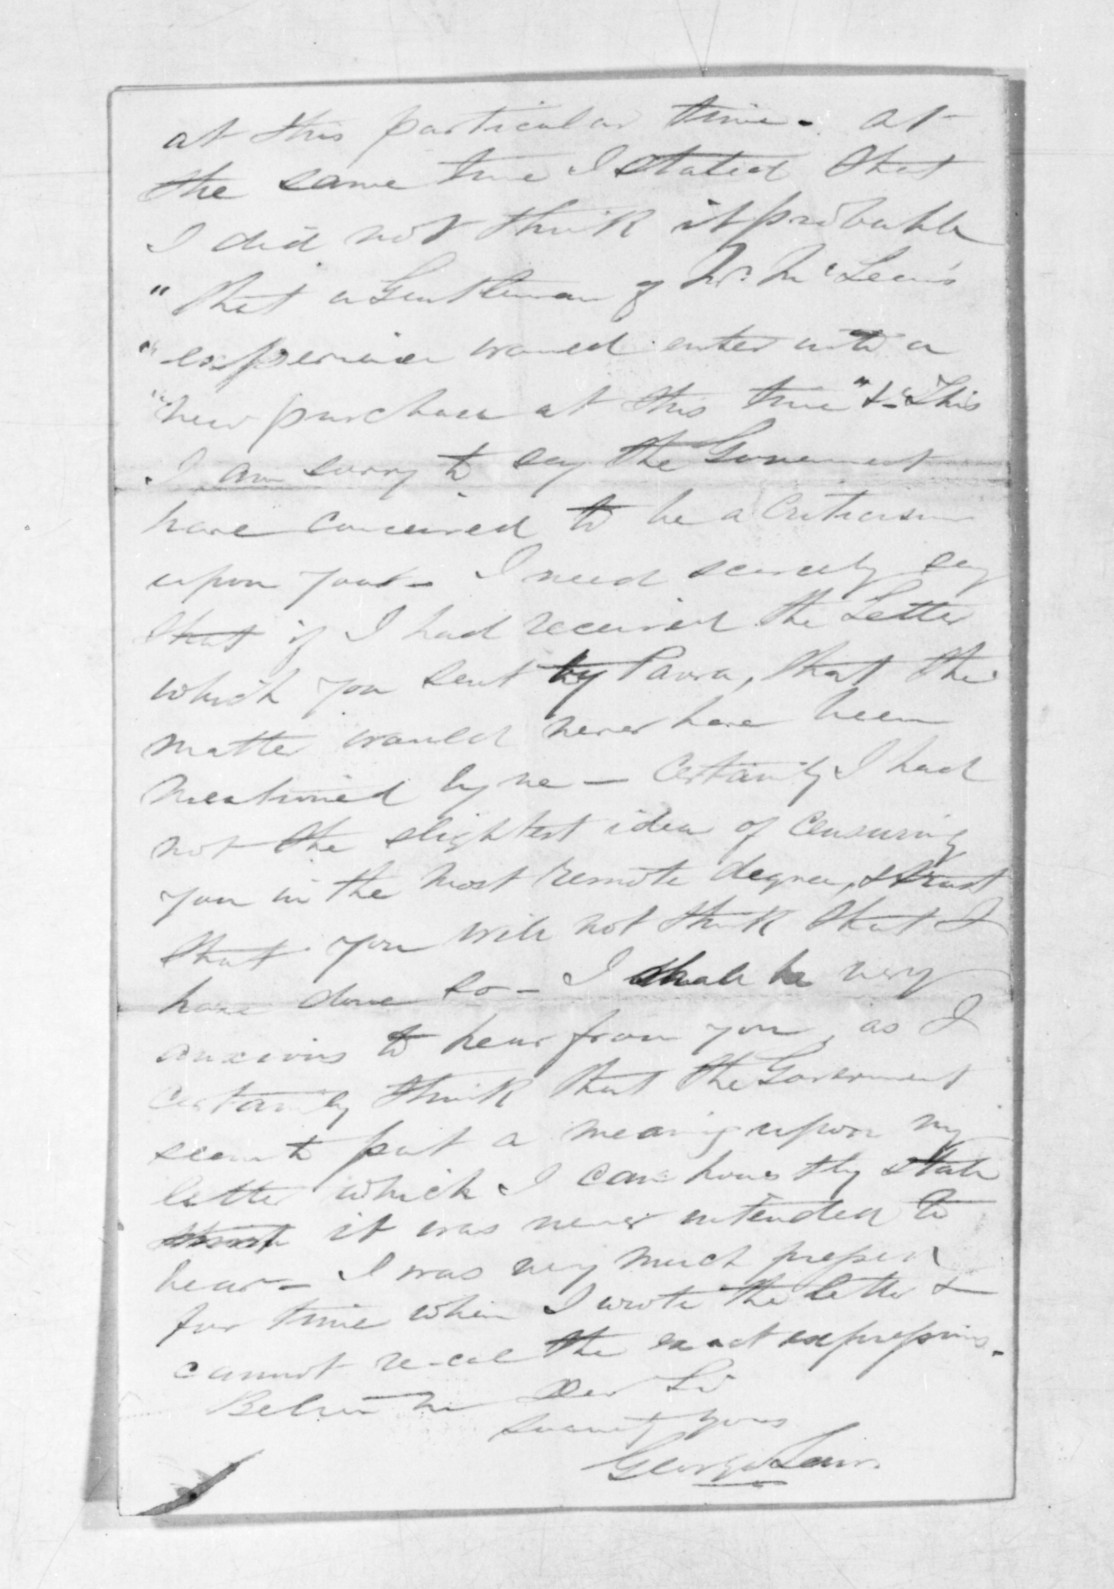 at this particular time. At
the same time I stated that
I did not think it probable
" that a Gentleman of Mr. McLean's
" experience would enter into a
" new purchase at this time" & "This
I am sorry to say the Government
have conceived to be a criticism
upon you - I need scarcely say
that if I had received the Letter
which you sent by Paora, that the
matter would never have been
mentioned by me - Certainly I had
not the slightest idea of censuring
you in the most remote degree, & trust
that you will not think that I
have done so - I shall be very
anxious to hear from you, as I
certainly think that the Government
seem to put a meaning upon my
letter which I can honestly state
it was never intended to
bear - I was very much pressed
for time when I wrote the letter &
cannot recal the exact expressions.
Believe me Dear Sir
Yours
George